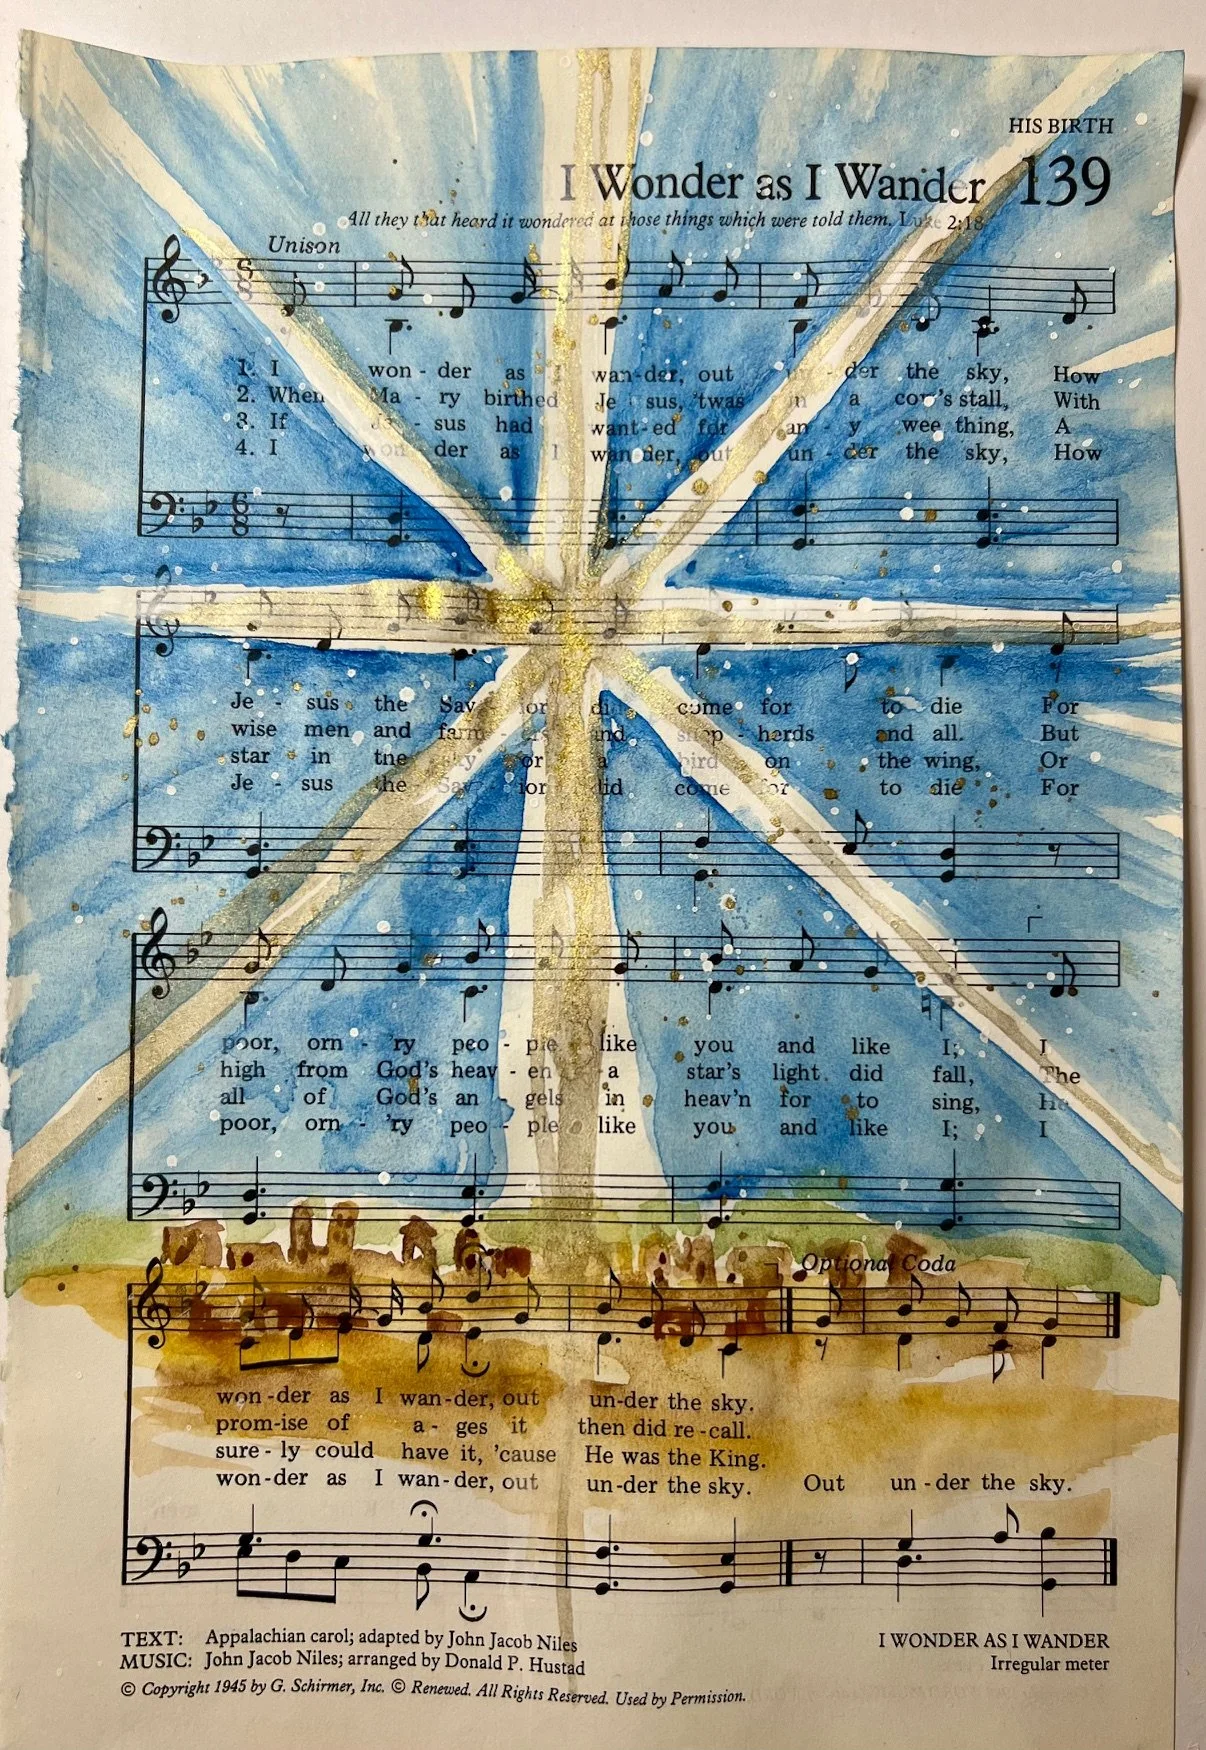 HIS BIRTH
I Wonder as I Wander 139
All they that heard it wondered at those things which were told them. Luke 2:18
Unison
1. I won - der as I wan-der, out un - der the sky, How
2. When Ma - ry birthed Je - sus, 'twas in a cow's stall, With
3. If Je - sus had want-ed for an - y wee thing, A
4. I won - der as I wan-der, out un - der the sky, How
Je - sus the Sav - ior did come for to die For
wise men and farm - ers and shep - herds and all. But
star in the sky or a bird on the wing, Or
Je - sus the Sav - ior did come for to die For
poor, orn - 'ry peo - ple like you and like I; I
high from God's heav - en a star's light did fall, The
all of God's an - gels in heav'n for to sing, He
poor, orn - 'ry peo - ple like you and like I; I
Optional Coda
won - der as I wan - der, out un-der the sky.
prom-ise of a - ges it then did re - call.
sure - ly could have it, 'cause He was the King.
won-der as I wan-der, out un-der the sky. Out un - der the sky.
TEXT: Appalachian carol; adapted by John Jacob Niles
MUSIC: John Jacob Niles; arranged by Donald P. Hustad
© Copyright 1945 by G. Schirmer, Inc. © Renewed. All Rights Reserved. Used by Permission.
I WONDER AS I WANDER
Irregular meter